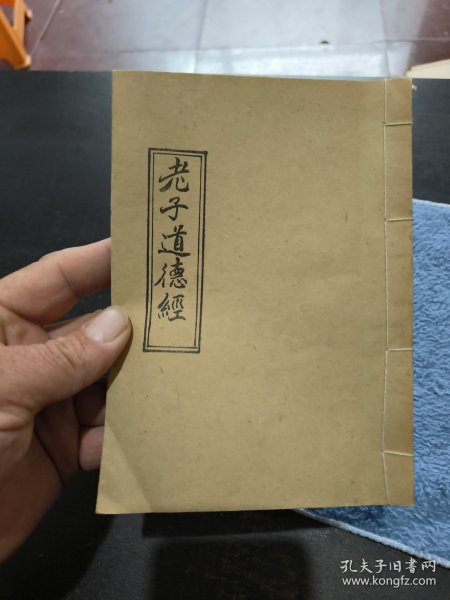 老子道德經
孔夫子旧书网
www.kongfz.com